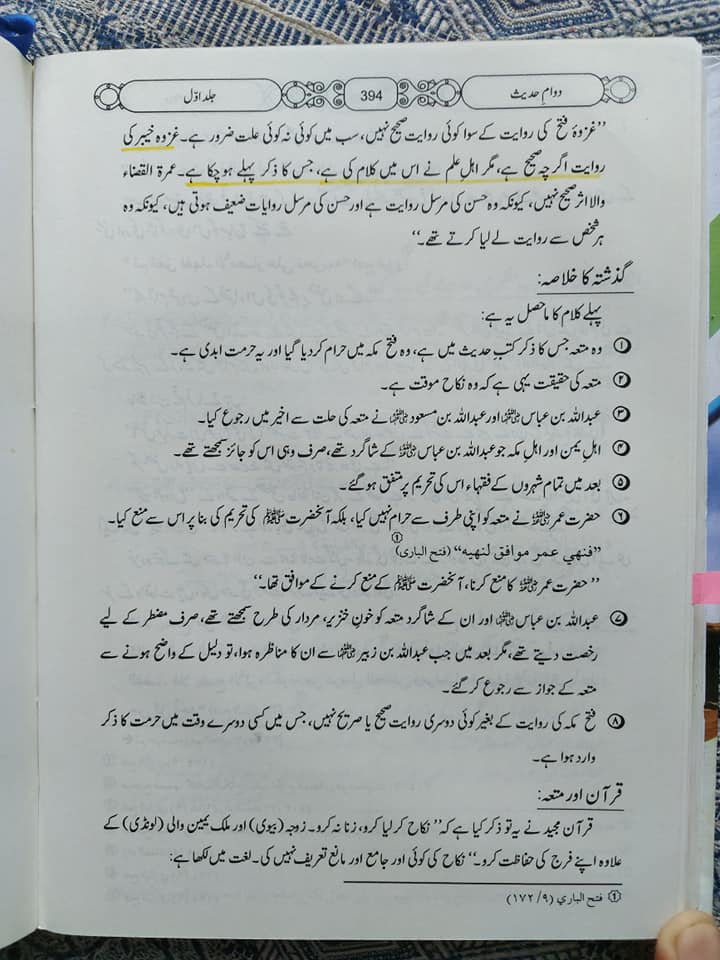 دوامِ حدیث 394 جلد اوّل
’’غزوۂ فتح کی روایت کے سوا کوئی روایت صحیح نہیں، سب میں کوئی نہ کوئی علت ضرور ہے۔ غزوہ خیبر کی
روایت اگرچہ صحیح ہے، مگر اہلِ علم نے اس میں کلام کی ہے، جس کا ذکر پہلے ہو چکا ہے۔ عمرۃ القضاء
والا اثر صحیح نہیں، کیونکہ وہ حسن کی مرسل روایت ہے اور حسن کی مرسل روایات ضعیف ہوتی ہیں، کیونکہ وہ
ہر شخص سے روایت لے لیا کرتے تھے۔‘‘
گذشتہ کا خلاصہ:
پہلے کلام کا ماحصل یہ ہے:
① وہ متعہ جس کا ذکر کتبِ حدیث میں ہے، وہ فتح مکہ میں حرام کر دیا گیا اور یہ حرمت ابدی ہے۔
② متعہ کی حقیقت یہی ہے کہ وہ نکاح موقت ہے۔
③ عبداللہ بن عباس رضی اللہ عنہما اور عبداللہ بن مسعود رضی اللہ عنہ نے متعہ کی حلت سے اخیر میں رجوع کیا۔
④ اہلِ یمن اور اہلِ مکہ جو عبداللہ بن عباس رضی اللہ عنہما کے شاگرد تھے، صرف وہی اس کو جائز سمجھتے تھے۔
⑤ بعد میں تمام شہروں کے فقہاء اس کی تحریم پر متفق ہو گئے۔
⑥ حضرت عمر رضی اللہ عنہ نے متعہ کو اپنی طرف سے حرام نہیں کیا، بلکہ آنحضرت ﷺ کی تحریم کی بنا پر اس سے منع کیا۔
’’فنهي عمر موافق لنهيه‘‘ (فتح الباری)①
’’حضرت عمر رضی اللہ عنہ کا منع کرنا، آنحضرت ﷺ کے منع کرنے کے موافق تھا۔‘‘
⑦ عبداللہ بن عباس رضی اللہ عنہما اور ان کے شاگرد متعہ کو خونِ خنزیر، مردار کی طرح سمجھتے تھے، صرف مضطر کے لیے
رخصت دیتے تھے، مگر بعد میں جب عبداللہ بن زبیر رضی اللہ عنہما سے ان کا مناظرہ ہوا، تو دلیل کے واضح ہونے سے
متعہ کے جواز سے رجوع کر گئے۔
⑧ فتح مکہ کی روایت کے بغیر کوئی دوسری روایت صحیح یا صریح نہیں، جس میں کسی دوسرے وقت میں حرمت کا ذکر
وارد ہوا ہے۔
قرآن اور متعہ:
قرآن مجید نے یہ تو ذکر کیا ہے کہ’’ نکاح کر لیا کرو، زنا نہ کرو۔ زوجہ (بیوی) اور ملک یمین والی (لونڈی) کے
علاوہ اپنے فرج کی حفاظت کرو۔‘‘ نکاح کی کوئی اور جامع اور مانع تعریف نہیں کی۔ لغت میں لکھا ہے:
① فتح الباري (۹/ ۱۷۲)